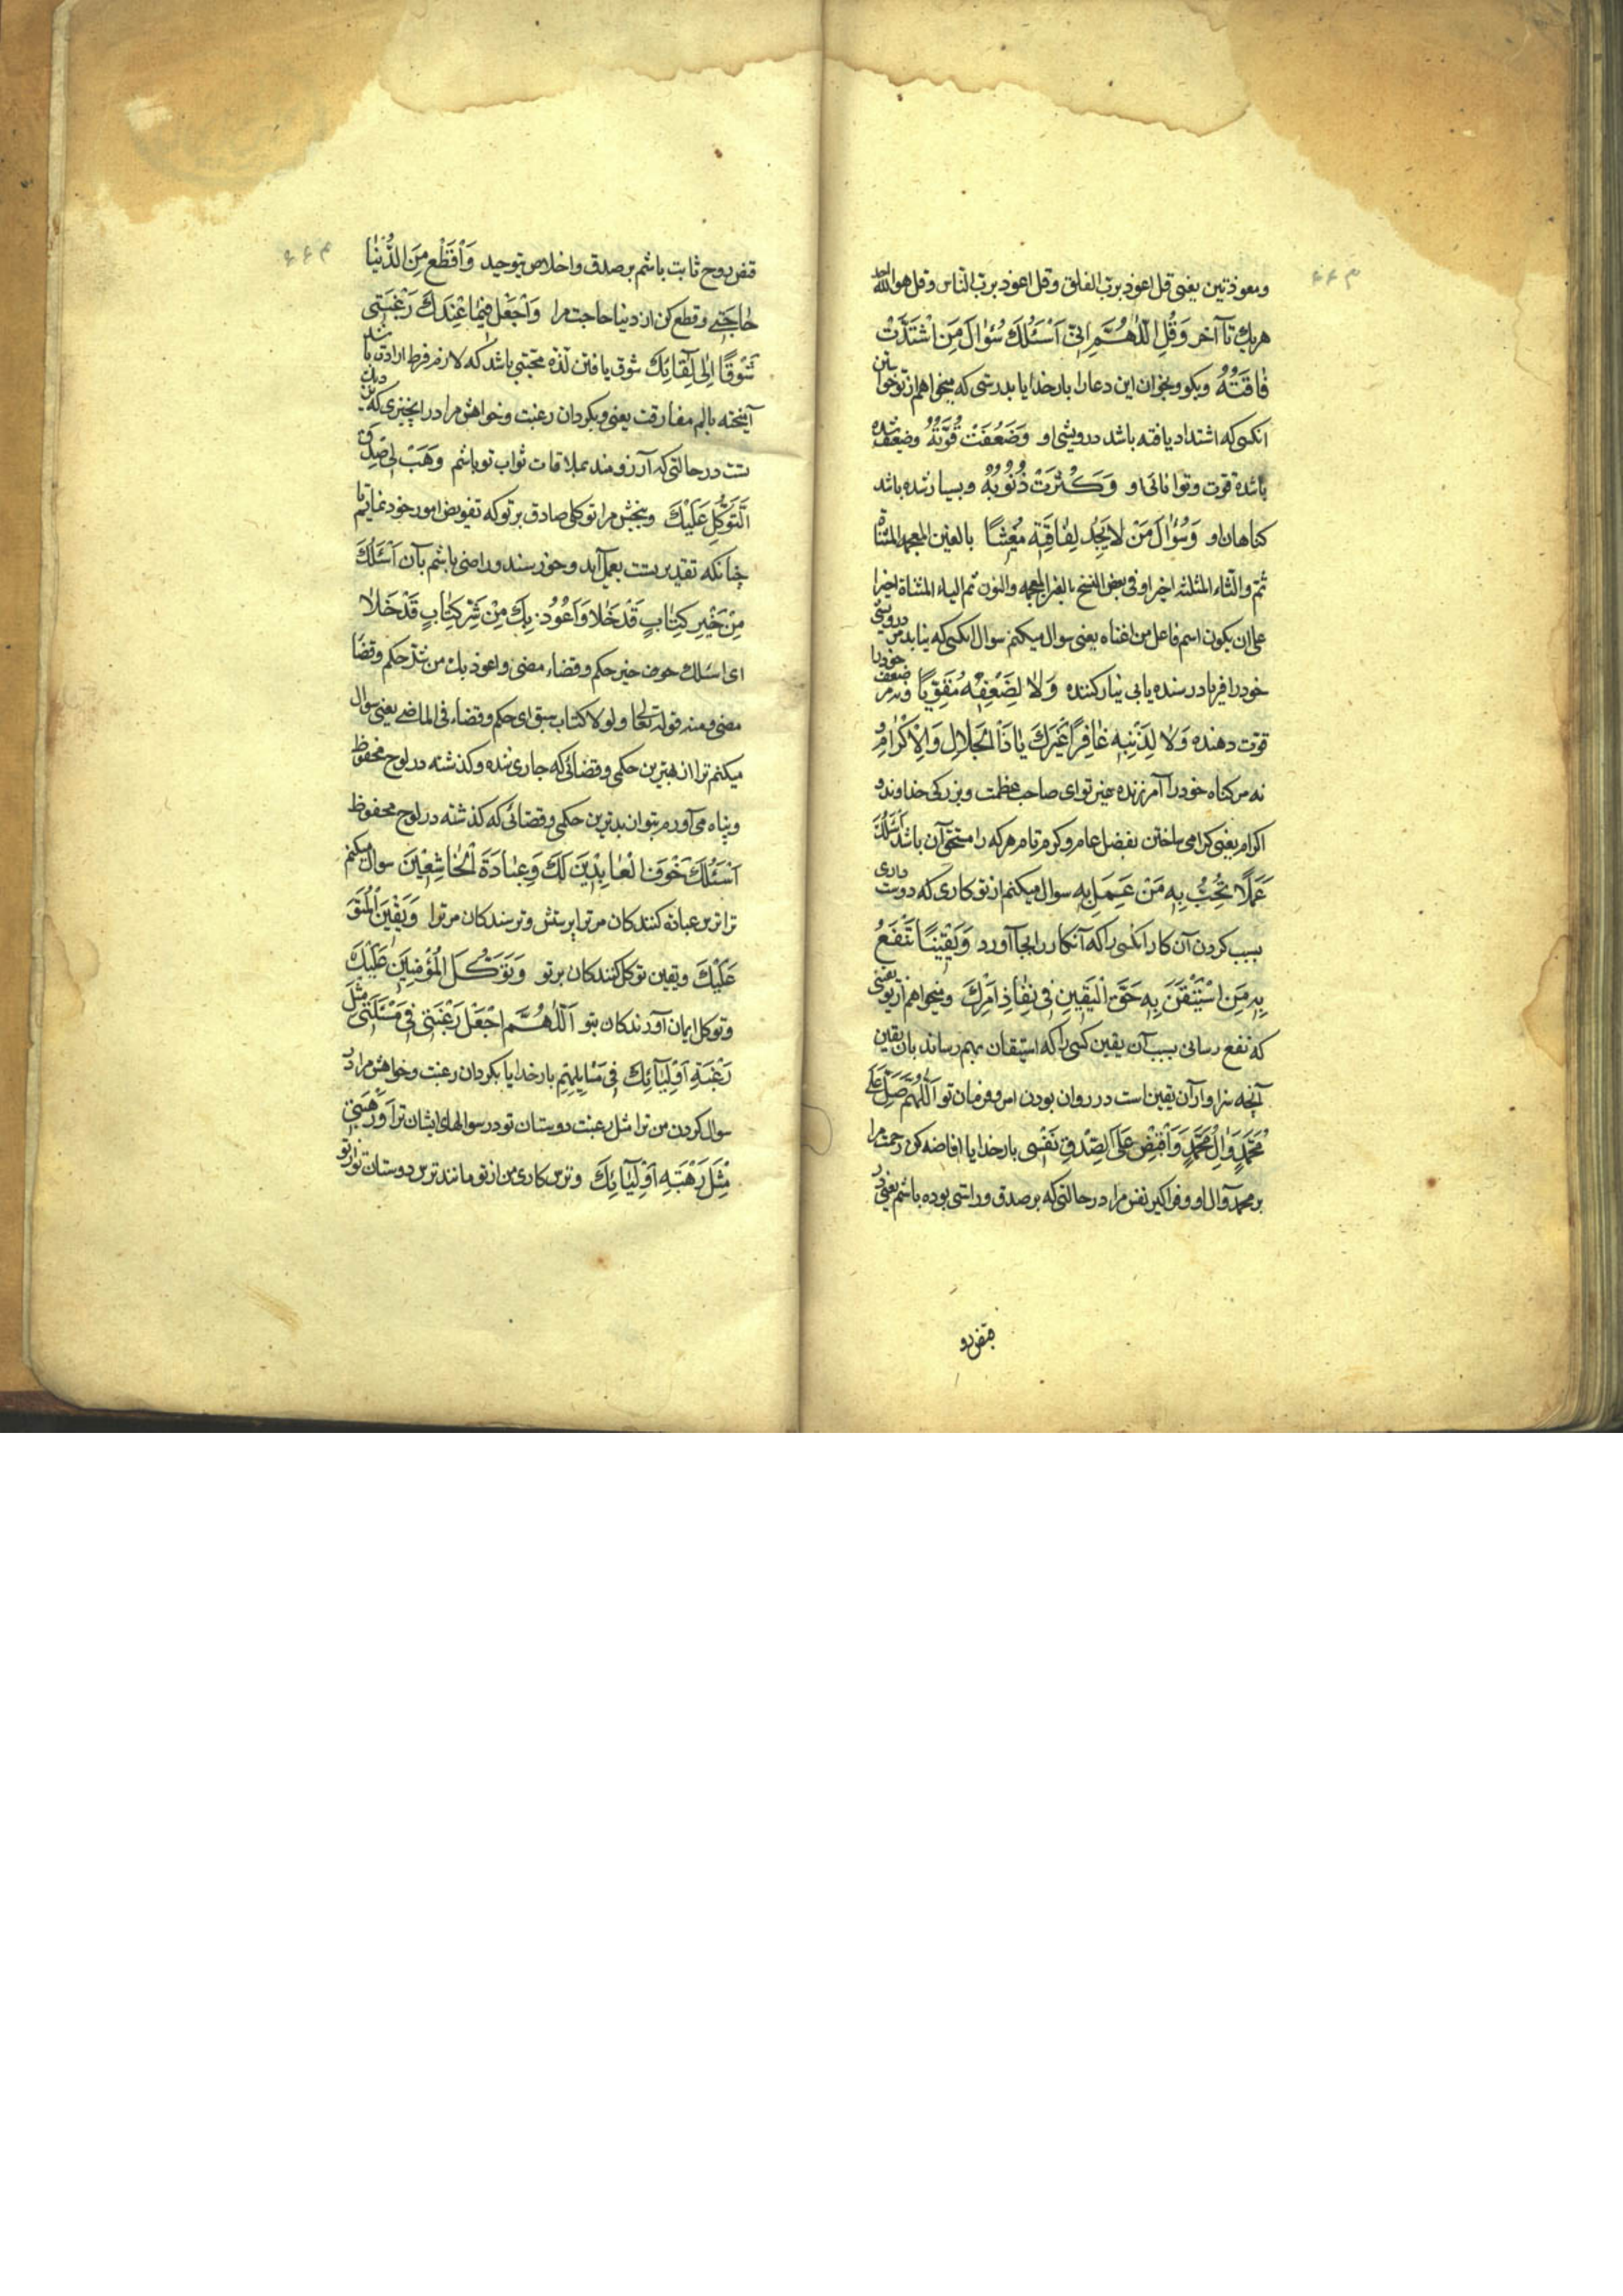 ۶۶۳
ومعوذتین یعنی قل اعوذ برب الفلق وقل اعوذ برب الناس وقل هو الله احد
هریك تا آخر وَقُلِ اللّٰهُمَّ اِنّیِ اَسْئَلُكَ سُؤٰالَ مَنِ اشْتَدَّتْ
فٰاقَتُهُ وبکو وبخوان این دعا را بار خدایا بدرستی که میخواهم از تو خواستن
انکسی که اشتداد یافته باشد درویشی او وَضَعُفَتْ قُوَّتُهُ وضعیف شده
باشد قوت وتوانائی او وَكَثُرَتْ ذُنُوبُهُ وبسیار شده باشد
کناهان او وَسُؤٰالَ مَنْ لاٰیَجِدُ لِفٰاقَتِهِ مُغِیثًا بالغین المعجمه المثناة
ثم والثاء المثلثه اخیرا وفی بعض النسخ بالغین المعجمه والنون ثم الیاء المثناة اخیرا
علی ان یکون اسم فاعل من اغناه یعنی سوال میکنم سوال انکسی که نیابد مر درویشی
خود را فریاد رسنده یا بی نیاز کننده وَلاٰ لِضَعْفِهِ مُقَوِّیًا ونه مر ضعف خود را
قوت دهنده وَلاٰ لِذَنْبِهِ غٰافِرًا غَیْرَكَ یٰا ذَا الْجَلاٰلِ وَالْاِكْرٰامِ و
نه مر کناه خود را آمرزنده غیر تو ای صاحب عظمت وبزرکی خداوند و
اکرام یعنی کرامی ساختن بفضل عام وکرم تام هر که را مستحق آن باشد اَسْئَلُكَ
عَمَلًا تُحِبُّ بِهِ مَنْ عَمِلَ بِهِ سوال میکنم از تو کاری که دوست داری
بسبب کردن آن کار انکسی را که آنکار را بجا آورد وَیَقِینًا تَنْفَعُ
بِهِ مَنِ اسْتَیْقَنَ بِهِ حَقَّ الْیَقِینِ فِی نَفٰاذِ اَمْرِكَ ومیخواهم از تو یقینی
که نفع رسانی بسبب آن یقین کسی را که استیقان بهم رساند بان یقین
آنچه سزاوار آن یقین است در روان بودن امر وفرمان تو اَللّٰهُمَّ صَلِّ عَلیٰ
مُحَمَّدٍ وَاٰلِ مُحَمَّدٍ وَاقْبِضْ عَلَی الصِّدْقِ نَفْسِی بار خدایا افاضه کن رحمت مرا
بر محمد وآل او وفراکیر نفس مرا در حالتی که بر صدق وراستی بوده باشم یعنی در
قبض رو
۶۶۴
قبض روح ثابت باشم بر صدق واخلاص بتوحید وَاقْطَعْ مِنَ الدُّنْیٰا
حٰاجَتِی وقطع کن از دنیا حاجت مرا وَاجْعَلْ فِیمٰا عِنْدَكَ رَغْبَتِی
شَوْقًا اِلٰی لِقٰائِكَ شوق یافتن لذه محبتی باشد که لازم فرط ارادت باشد
آمیخته بالم مفارقت یعنی وبکردان رغبت وخواهش مرا در انچیزی که نزد
تست در حالتی که آرزومند بملاقات ثواب تو باشم وَهَبْ لِی صِدْقَ
التَّوَكُّلِ عَلَیْكَ وببخش مرا توکلی صادق بر تو که تفویض امور خود نمایم تا
چنانکه تقدیر تست بعمل آید وخورسند وراضی باشم بآن اَسْئَلُكَ
مِنْ خَیْرِ كِتٰابٍ قَدْ خَلاٰ وَاَعُوذُ بِكَ مِنْ شَرِّ كِتٰابٍ قَدْ خَلاٰ
ای اسئلك خیر حکم وقضاء مضی واعوذ بك من شر حکم وقضا
مضی ومنه قوله تعالی ولولا کتاب سبق ای حکم وقضاء فی الماضی یعنی سوال
میکنم ترا از بهترین حکمی وقضائی که جاری شده وکذشته در لوح محفوظ
وپناه می آورم بتو از بدترین حکمی وقضائی که کذشته در لوح محفوظ
اَسْئَلُكَ خَوْفَ الْعٰابِدِینَ لَكَ وَعِبٰادَةَ الْخٰاشِعِینَ سوال میکنم
ترا ترس عبادة کنندکان مر ترا پرستش وترسندکان مر ترا وَیَقِینَ الْمُتَوَ
عَلَیْكَ ویقین توکل کنندکان بر تو وَتَوَكُّلَ الْمُؤْمِنِینَ عَلَیْكَ
وتوکل ایمان آورندکان بتو اَللّٰهُمَّ اجْعَلْ رَغْبَتِی فِی مَسْئَلَتِی مِثْلَ
رَغْبَةِ اَوْلِیٰائِكَ فِی مَسٰائِلِهِمْ بار خدایا بکردان رغبت وخواهش مرا در
سوال کردن من ترا مثل رغبت دوستان تو در سوالهای ایشان ترا وَرَهْبَتِی
مِثْلَ رَهْبَةِ اَوْلِیٰائِكَ وترس کاری من از تو مانند ترس دوستان تو از تو